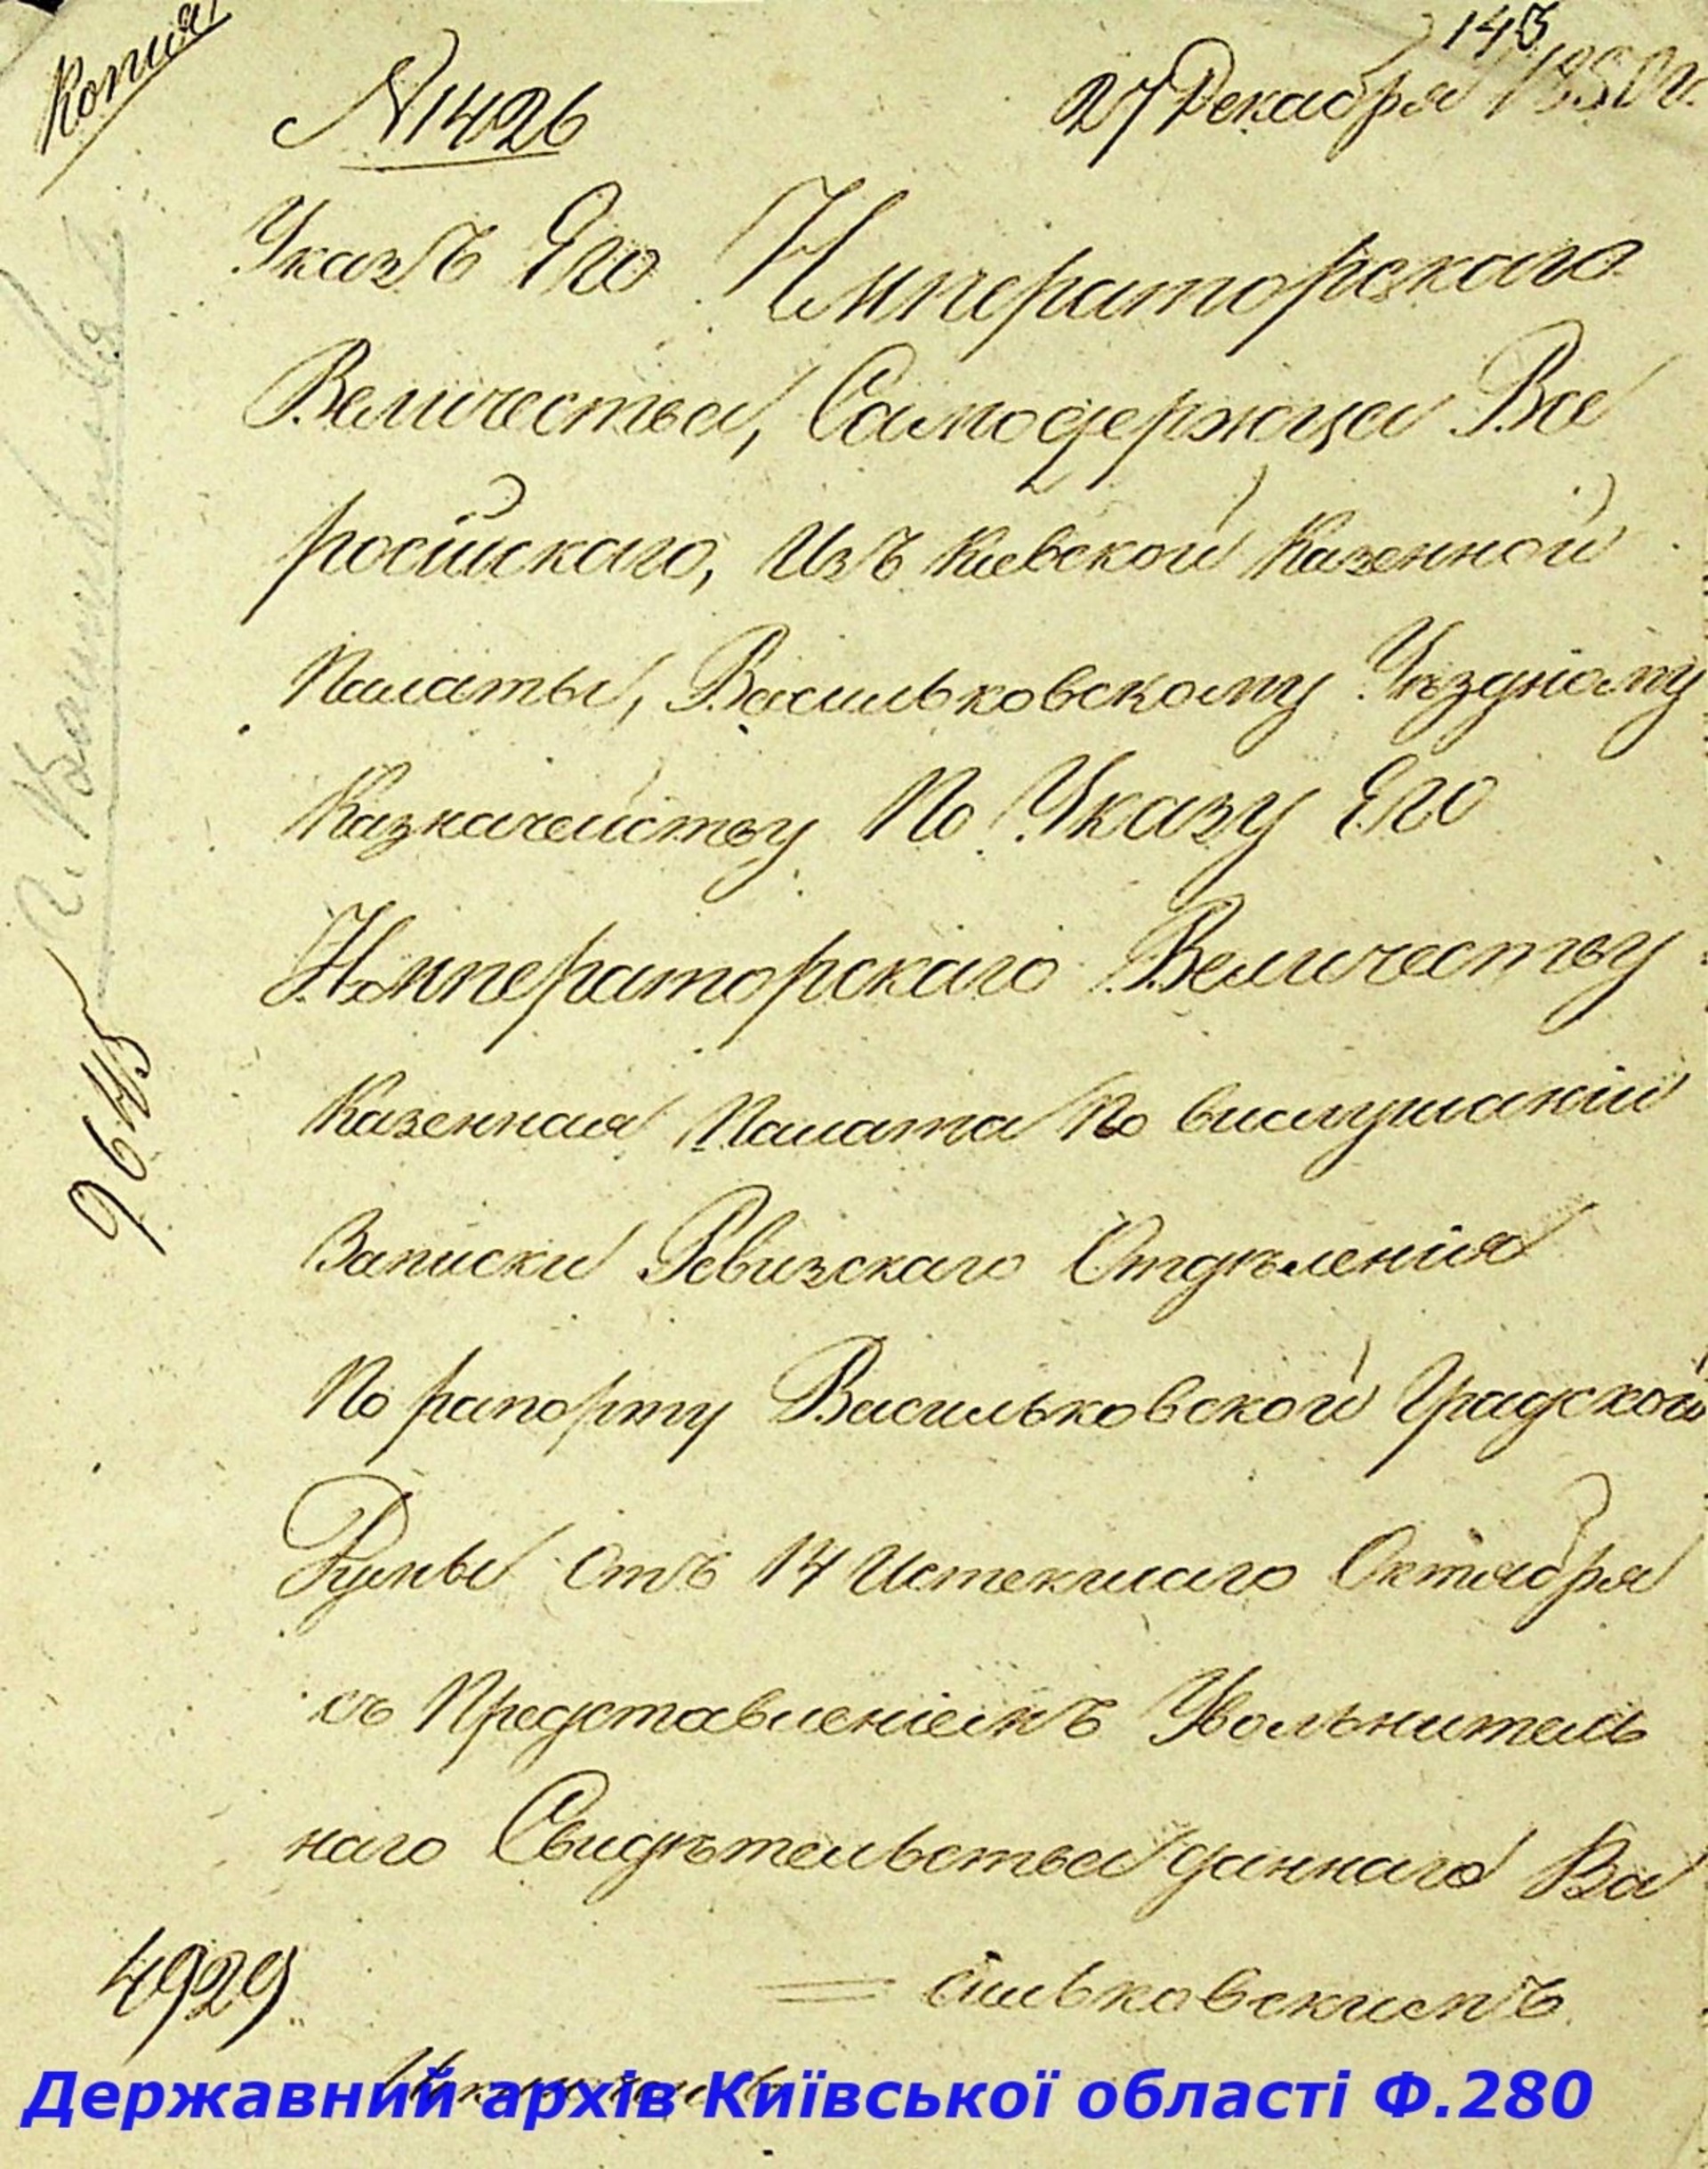 Копия
143
№ 1426
27 Декабря 1850 г.
Указъ Его Императорскаго
Величества, Самодержца Все
росийскаго, Изъ Киевской Казенной
Палаты, Васильковскому Уѣздному
Казначейству По Указу Его
Императорскаго Величеству
Казенная Палата По выслушаніи
Записки Ревизскаго Отдѣленія
По рапорту Васильковской Градской
Думы Отъ 14 Истекшаго Октября
съ Представленіемъ Увольнитель
наго Свидѣтельства даннаго Ва
сильковскимъ
4929
Державний архів Київської області Ф.280